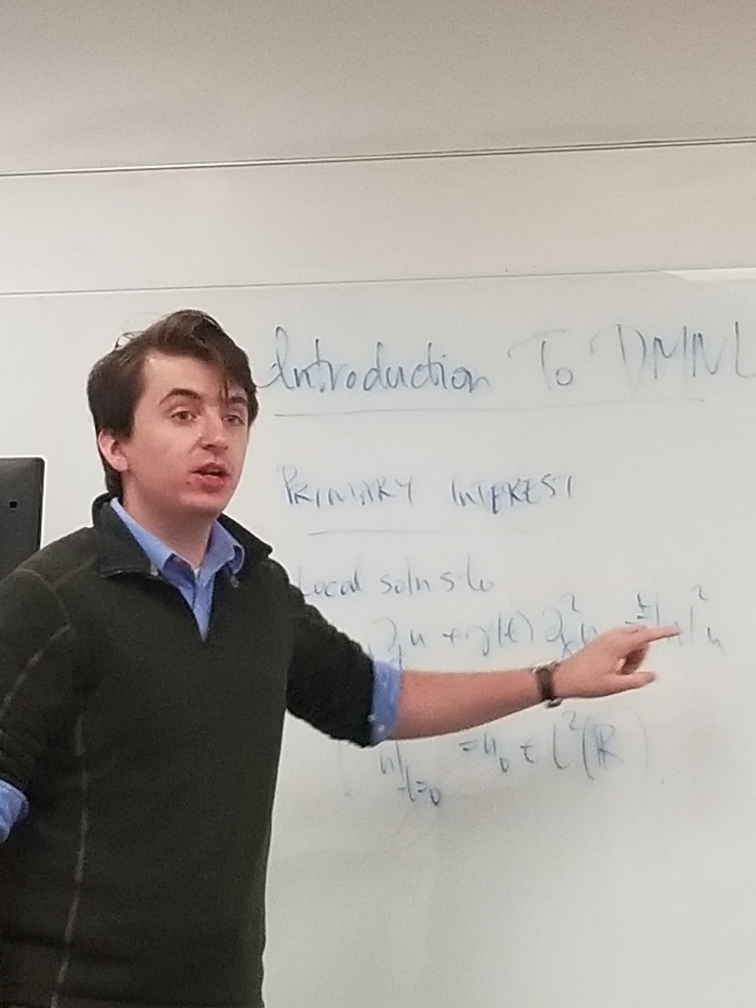 Introduction To DMNL
PRIMARY INTEREST
Local solns to
∂ₜu + γ(t) ∂ₓ²u = ±|u|²u
u|ₜ₌₀ = u₀ ∈ L²(ℝ)